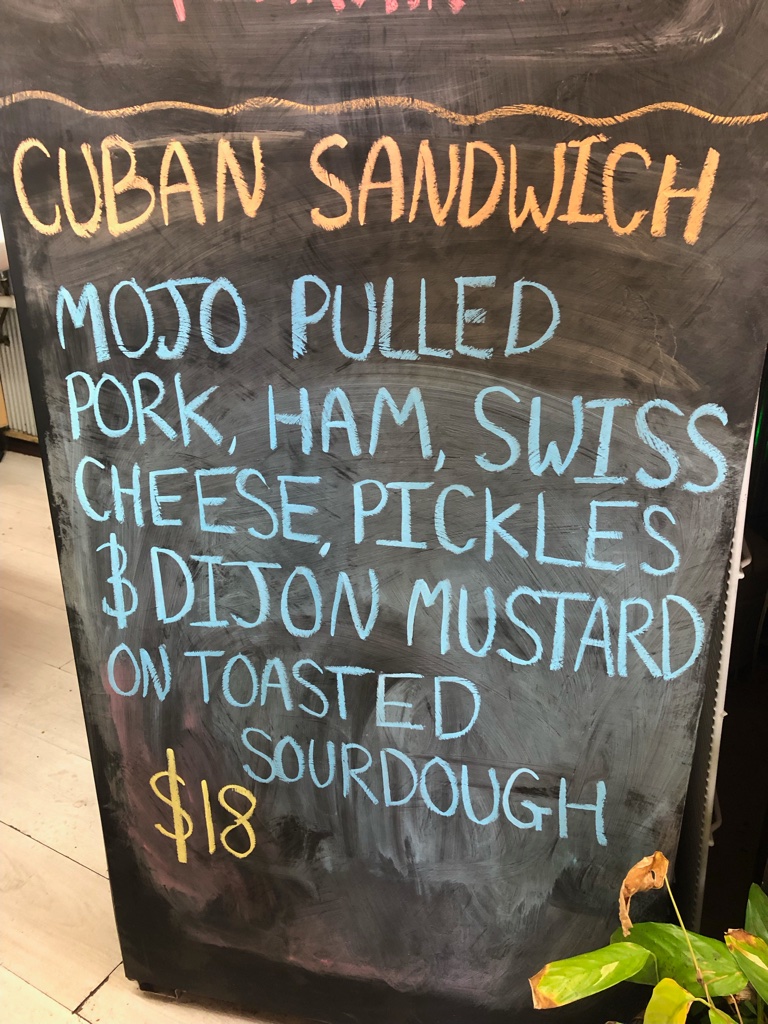 CUBAN SANDWICH
MOJO PULLED
PORK, HAM, SWISS
CHEESE, PICKLES
& DIJON MUSTARD
ON TOASTED
SOURDOUGH
$18